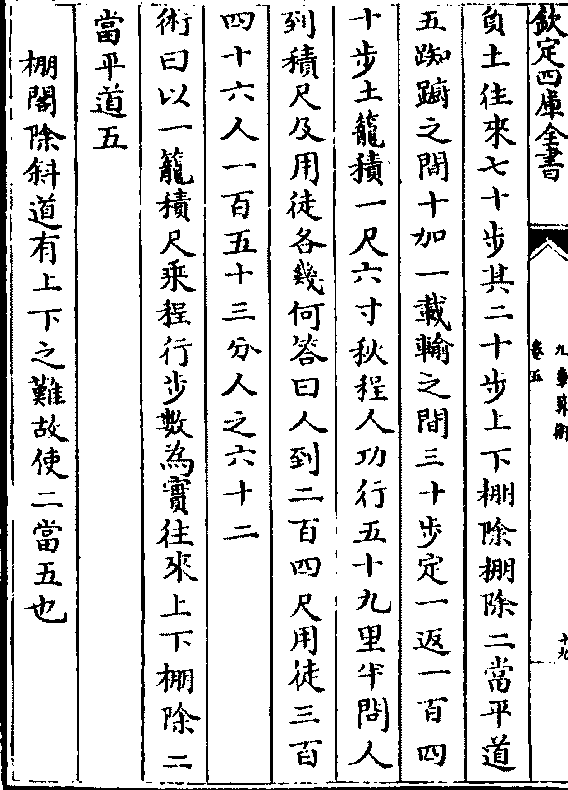 欽定四庫全書
九章算術
卷五
十九
負土往來七十步其二十步上下棚除棚除二當平道
五踟蹰之間十加一載輸之間三十步定一返一百四
十步土籠積一尺六寸秋程人功行五十九里半問人
到積尺及用徒各幾何答曰人到二百四尺用徒三百
四十六人一百五十三分人之六十二
術曰以一籠積尺乘程行步數為實往來上下棚除二
當平道五
棚閣除斜道有上下之難故使二當五也